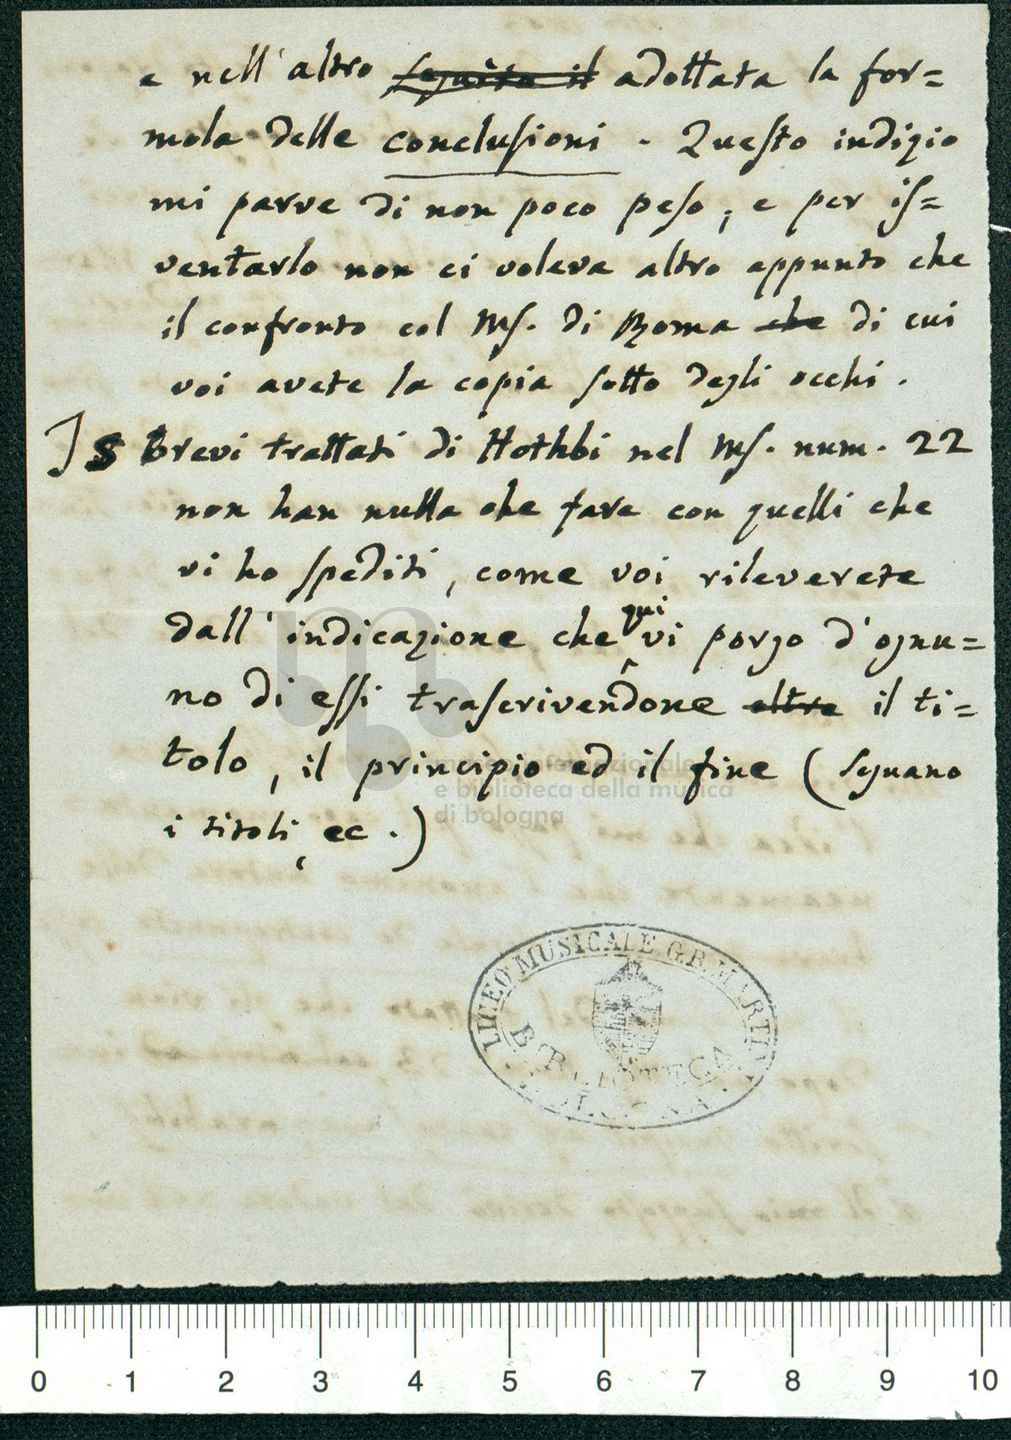 e nell'altro seguita il adottata la for=
mola delle conclusioni. Questo indizio
mi parve di non poco peso, e per is=
ventarlo non ci voleva altro appunto che
il confronto col Ms. di Roma che di cui
voi avete la copia sotto degli occhi.
I 5 Brevi trattati di Hothbi nel Ms. num. 22
non han nulla che fare con quelli che
vi ho spediti, come voi rileverete
dall'indicazione che qui vi porgo d'ognu=
no di essi trascrivendone oltre il ti=
tolo, il principio ed il fine (seguano
i titoli, ec.)
museo internazionale
e biblioteca della musica
di bologna
LICEO MUSICALE G.B. MARTINI
BIBLIOTECA
BOLOGNA
0 1 2 3 4 5 6 7 8 9 10